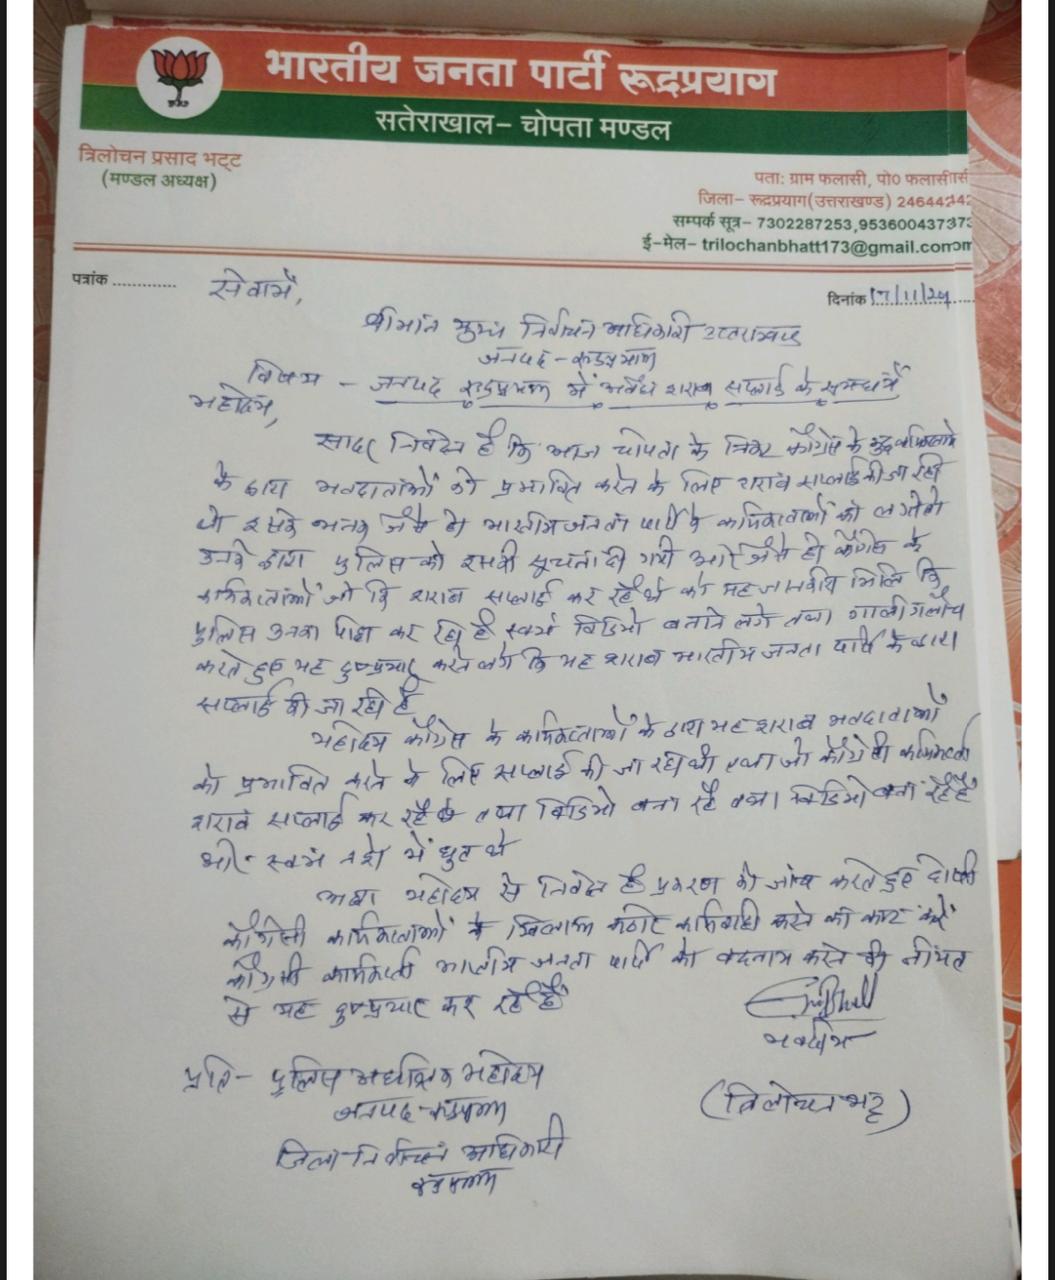 भारतीय जनता पार्टी रूद्रप्रयाग
सतेराखाल- चोपता मण्डल
त्रिलोचन प्रसाद भट्ट
(मण्डल अध्यक्ष)
पता: ग्राम फलासी, पो० फलासी
जिला- रूद्रप्रयाग(उत्तराखण्ड) 246442
सम्पर्क सूत्र- 7302287253,9536004373
ई-मेल- trilochanbhatt173@gmail.com
पत्रांक .............
दिनांक 17/11/24
सेवामें,
श्रीमान मुख्य निर्वाचन अधिकारी उत्तराखण्ड
जनपद - रूद्रप्रयाग
विषय - जनपद रूद्रप्रयाग में अवैध शराब सप्लाई के सम्बन्ध में
महोदय,
सादर निवेदन है कि आज चोपता के निकट काँग्रेस के कुछ कार्यकर्ताओं
के द्वारा मतदाताओं को प्रभावित करने के लिए शराब सप्लाई की जा रही
थी इसके भनक जैसे ही भारतीय जनता पार्टी के कार्यकर्ताओं को लगी तो
उनके द्वारा पुलिस को इसकी सूचना दी गयी और जैसे ही काँग्रेस के
कार्यकर्ताओं जो कि शराब सप्लाई कर रहे थे को यह जानकारी मिलि कि
पुलिस उनका पीछा कर रही है स्वयं विडियो बनाने लगे तथा गाली गलौच
करते हुए यह दुष्प्रचार करने लगे कि यह शराब भारतीय जनता पार्टी के द्वारा
सप्लाई की जा रही है
महोदय काँग्रेस के कार्यकर्ताओं के द्वारा यह शराब मतदाताओं
को प्रभावित करने के लिए सप्लाई की जा रही थी तथा जो काँग्रेसी कार्यकर्ता
शराब सप्लाई कर रहे थे तथा विडियो बना रहे तथा विडियो बना रहे हैं
और स्वयं नशे में धुत थे
अतः महोदय से निवेदन है प्रकरण की जांच करते हुए दोषी
काँग्रेसी कार्यकर्ताओं के खिलाफ कठोर कार्यवाही करने का कष्ट करें
काँग्रेसी कार्यकर्ता भारतीय जनता पार्टी को बदनाम करने की नीयत
से यह दुष्प्रचार कर रहे हैं
भवदीय
प्रति- पुलिस अधीक्षक महोदय
जनपद-रूद्रप्रयाग
(त्रिलोचन भट्ट)
जिला निर्वाचन अधिकारी
रूद्रप्रयाग